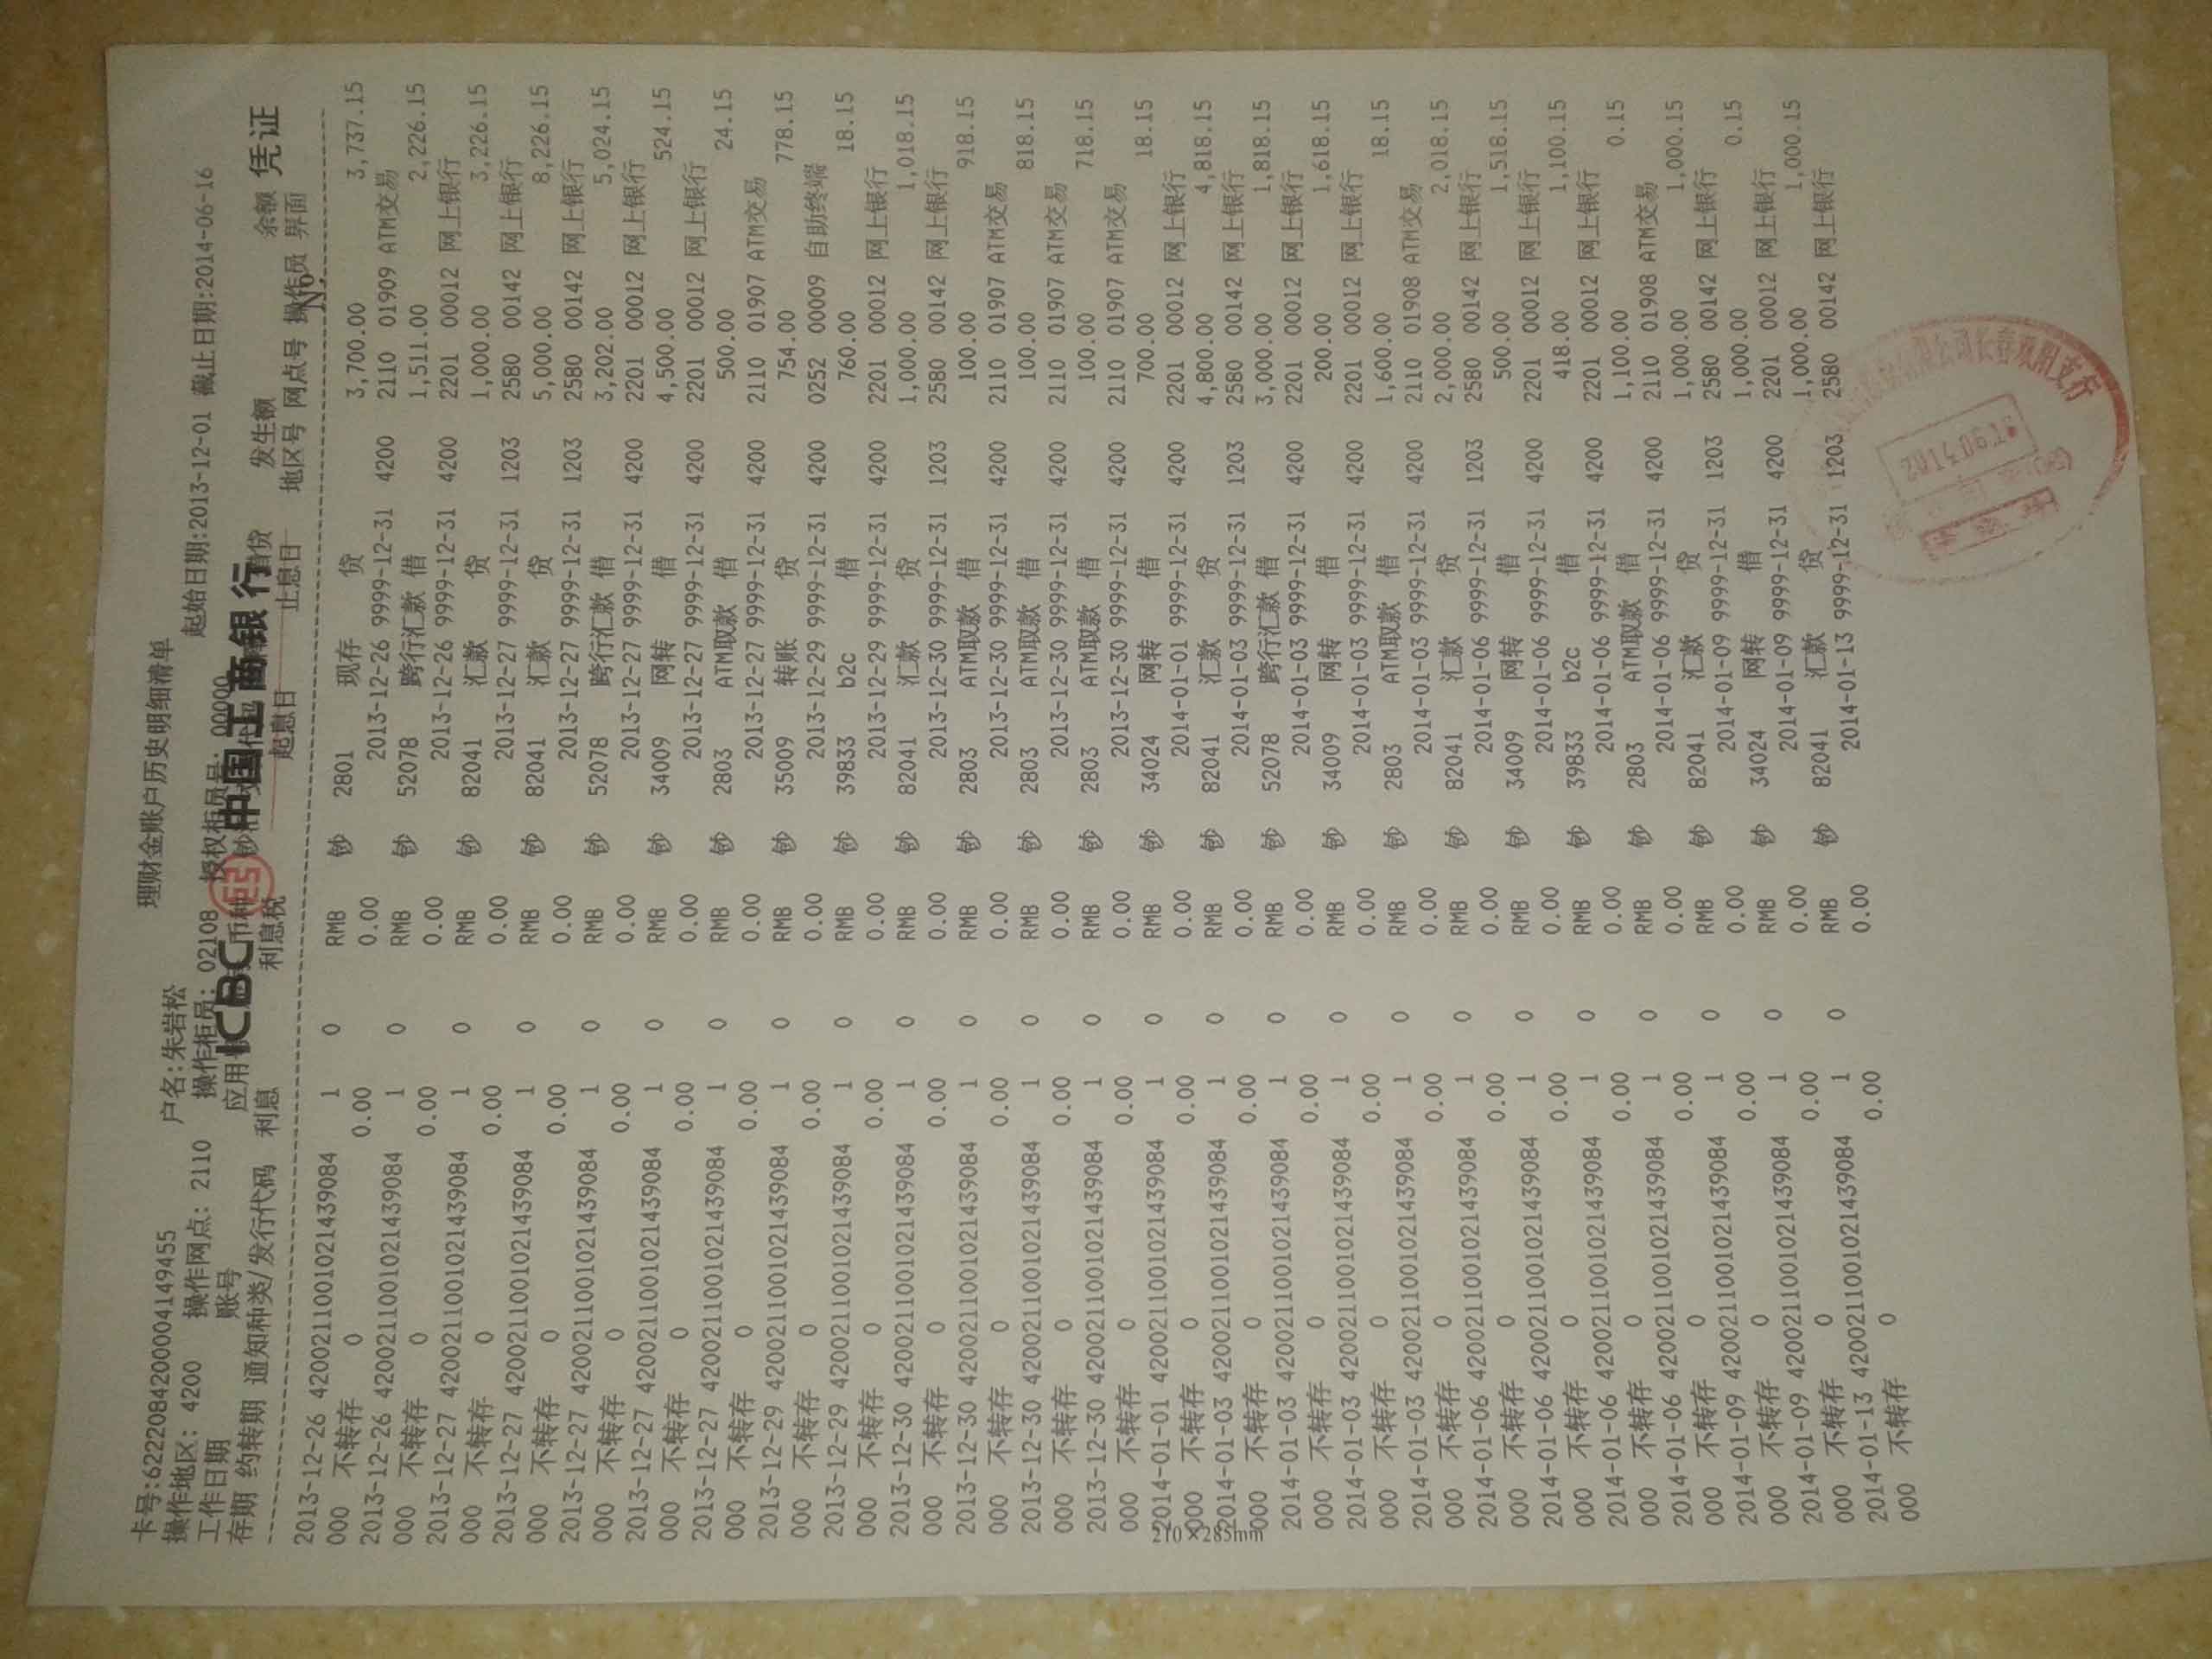 理财金账户历史明细清单
卡号:6222084200004149455 户名:朱岩松 起始日期:2013-12-01 截止日期:2014-06-16
操作地区: 4200 操作网点: 2110 操作柜员: 02108 授权柜员号: 00000
ICBC 中国工商银行 凭证
工作日期 账号 应用 币种 借贷 发生额 余额
存期 约转期 通知种类/发行代码 利息 利息税 起息日 止息日 地区号 网点号 操作员 界面
No
2013-12-26 4200211001021439084 1 0 RMB 钞 2801 现存 贷 3,700.00 3,737.15
000 不转存 0 0.00 0.00 2013-12-26 9999-12-31 4200 2110 01909 ATM交易
2013-12-26 4200211001021439084 1 0 RMB 钞 52078 跨行汇款 借 1,511.00 2,226.15
000 不转存 0 0.00 0.00 2013-12-26 9999-12-31 4200 2201 00012 网上银行
2013-12-27 4200211001021439084 1 0 RMB 钞 82041 汇款 贷 1,000.00 3,226.15
000 不转存 0 0.00 0.00 2013-12-27 9999-12-31 1203 2580 00142 网上银行
2013-12-27 4200211001021439084 1 0 RMB 钞 82041 汇款 贷 5,000.00 8,226.15
000 不转存 0 0.00 0.00 2013-12-27 9999-12-31 1203 2580 00142 网上银行
2013-12-27 4200211001021439084 1 0 RMB 钞 52078 跨行汇款 借 3,202.00 5,024.15
000 不转存 0 0.00 0.00 2013-12-27 9999-12-31 4200 2201 00012 网上银行
2013-12-27 4200211001021439084 1 0 RMB 钞 34009 网转 借 4,500.00 524.15
000 不转存 0 0.00 0.00 2013-12-27 9999-12-31 4200 2201 00012 网上银行
2013-12-27 4200211001021439084 1 0 RMB 钞 2803 ATM取款 借 500.00 24.15
000 不转存 0 0.00 0.00 2013-12-27 9999-12-31 4200 2110 01907 ATM交易
2013-12-29 4200211001021439084 1 0 RMB 钞 35009 转账 贷 754.00 778.15
000 不转存 0 0.00 0.00 2013-12-29 9999-12-31 4200 0252 00009 自助终端
2013-12-29 4200211001021439084 1 0 RMB 钞 39833 b2c 借 760.00 18.15
000 不转存 0 0.00 0.00 2013-12-29 9999-12-31 4200 2201 00012 网上银行
2013-12-30 4200211001021439084 1 0 RMB 钞 82041 汇款 贷 1,000.00 1,018.15
000 不转存 0 0.00 0.00 2013-12-30 9999-12-31 1203 2580 00142 网上银行
2013-12-30 4200211001021439084 1 0 RMB 钞 2803 ATM取款 借 100.00 918.15
000 不转存 0 0.00 0.00 2013-12-30 9999-12-31 4200 2110 01907 ATM交易
2013-12-30 4200211001021439084 1 0 RMB 钞 2803 ATM取款 借 100.00 818.15
000 不转存 0 0.00 0.00 2013-12-30 9999-12-31 4200 2110 01907 ATM交易
2013-12-30 4200211001021439084 1 0 RMB 钞 2803 ATM取款 借 100.00 718.15
000 不转存 0 0.00 0.00 2013-12-30 9999-12-31 4200 2110 01907 ATM交易
2014-01-01 4200211001021439084 1 0 RMB 钞 34024 网转 借 700.00 18.15
000 不转存 0 0.00 0.00 2014-01-01 9999-12-31 4200 2201 00012 网上银行
2014-01-03 4200211001021439084 1 0 RMB 钞 82041 汇款 贷 4,800.00 4,818.15
000 不转存 0 0.00 0.00 2014-01-03 9999-12-31 1203 2580 00142 网上银行
2014-01-03 4200211001021439084 1 0 RMB 钞 52078 跨行汇款 借 3,000.00 1,818.15
000 不转存 0 0.00 0.00 2014-01-03 9999-12-31 4200 2201 00012 网上银行
2014-01-03 4200211001021439084 1 0 RMB 钞 34009 网转 借 200.00 1,618.15
000 不转存 0 0.00 0.00 2014-01-03 9999-12-31 4200 2201 00012 网上银行
2014-01-03 4200211001021439084 1 0 RMB 钞 2803 ATM取款 借 1,600.00 18.15
000 不转存 0 0.00 0.00 2014-01-03 9999-12-31 4200 2110 01908 ATM交易
2014-01-06 4200211001021439084 1 0 RMB 钞 82041 汇款 贷 2,000.00 2,018.15
000 不转存 0 0.00 0.00 2014-01-06 9999-12-31 1203 2580 00142 网上银行
2014-01-06 4200211001021439084 1 0 RMB 钞 34009 网转 借 500.00 1,518.15
000 不转存 0 0.00 0.00 2014-01-06 9999-12-31 4200 2201 00012 网上银行
2014-01-06 4200211001021439084 1 0 RMB 钞 39833 b2c 借 418.00 1,100.15
000 不转存 0 0.00 0.00 2014-01-06 9999-12-31 4200 2201 00012 网上银行
2014-01-06 4200211001021439084 1 0 RMB 钞 2803 ATM取款 借 1,100.00 0.15
000 不转存 0 0.00 0.00 2014-01-06 9999-12-31 4200 2110 01908 ATM交易
2014-01-09 4200211001021439084 1 0 RMB 钞 82041 汇款 贷 1,000.00 1,000.15
000 不转存 0 0.00 0.00 2014-01-09 9999-12-31 1203 2580 00142 网上银行
2014-01-09 4200211001021439084 1 0 RMB 钞 34024 网转 借 1,000.00 0.15
000 不转存 0 0.00 0.00 2014-01-09 9999-12-31 4200 2201 00012 网上银行
2014-01-13 4200211001021439084 1 0 RMB 钞 82041 汇款 贷 1,000.00 1,000.15
000 不转存 0 0.00 0.00 2014-01-13 9999-12-31 1203 2580 00142 网上银行
210×285mm
公司长春双阳支行